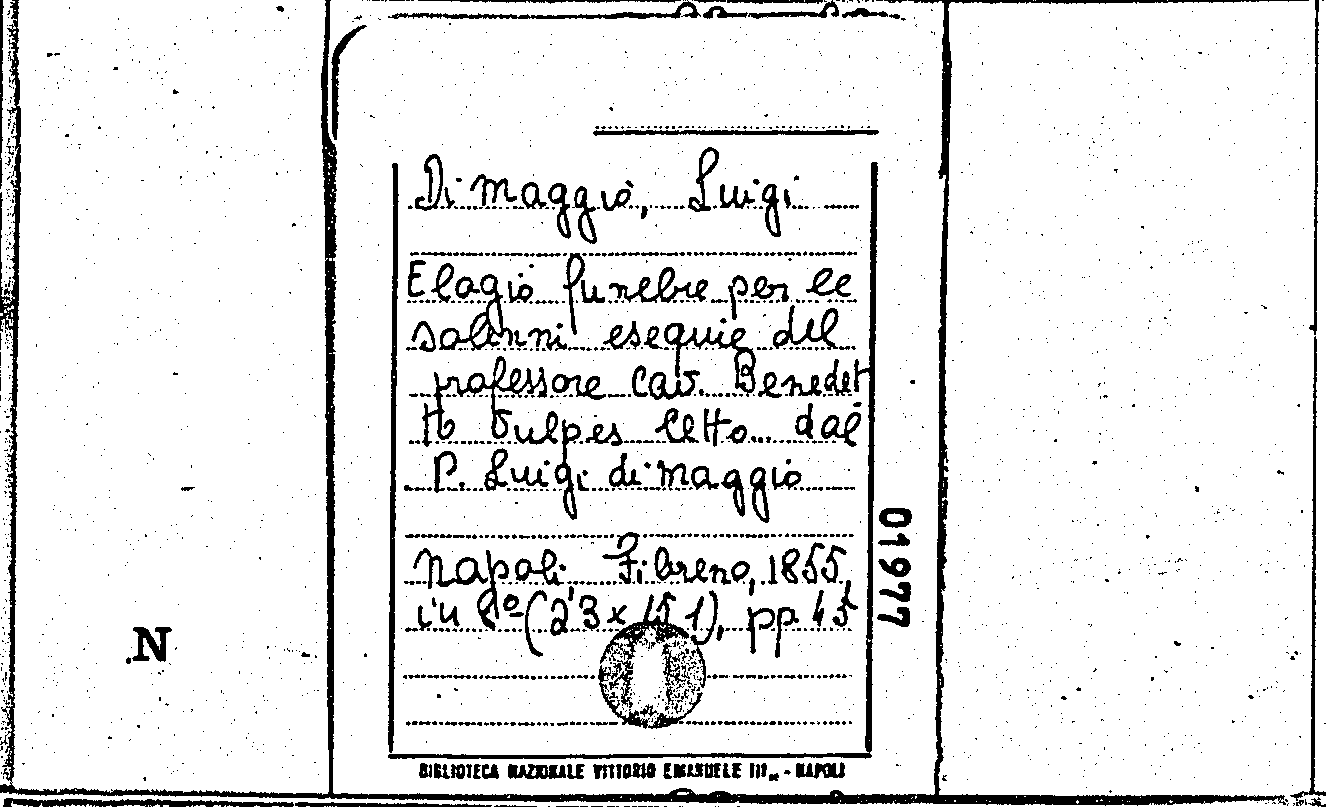 Di maggio, Luigi
Elogio funebre per le
solenni esequie del
professore cav. Benedet
to Vulpes letto... dal
P. Luigi di maggio
Napoli Fibreno, 1855,
in 8º (23 x 15 1), pp 45
01977
N
BIBLIOTECA NAZIONALE VITTORIO EMANUELE III - NAPOLI